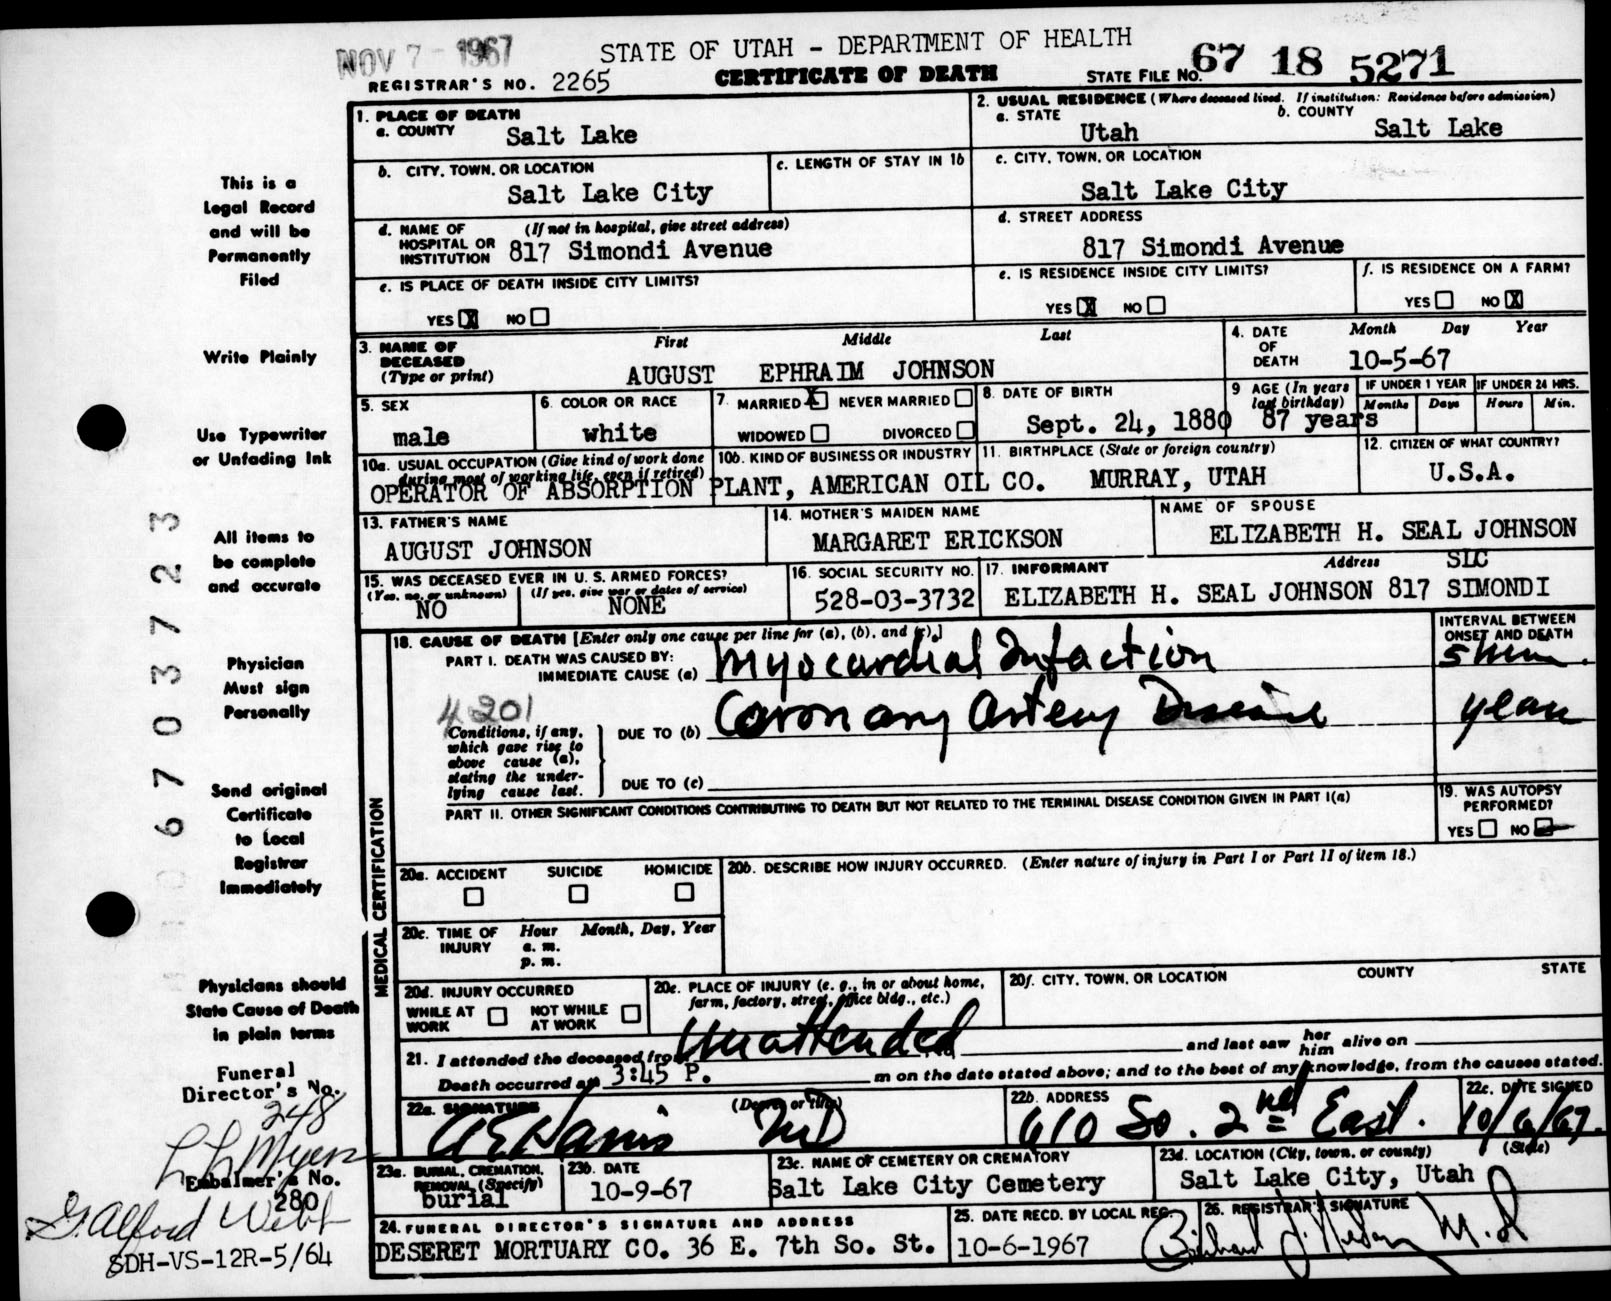 NOV 7 - 1967
STATE OF UTAH - DEPARTMENT OF HEALTH
REGISTRAR'S NO. 2265
CERTIFICATE OF DEATH
STATE FILE NO. 67 18 5271
1. PLACE OF DEATH
a. COUNTY Salt Lake
2. USUAL RESIDENCE (Where deceased lived. If institution: Residence before admission)
a. STATE Utah b. COUNTY Salt Lake
b. CITY, TOWN, OR LOCATION Salt Lake City
c. LENGTH OF STAY IN 1b
c. CITY, TOWN, OR LOCATION Salt Lake City
d. NAME OF HOSPITAL OR INSTITUTION (If not in hospital, give street address) 817 Simondi Avenue
d. STREET ADDRESS 817 Simondi Avenue
e. IS PLACE OF DEATH INSIDE CITY LIMITS? YES X NO
e. IS RESIDENCE INSIDE CITY LIMITS? YES X NO
f. IS RESIDENCE ON A FARM? YES NO X
3. NAME OF DECEASED (Type or print) First Middle Last
AUGUST EPHRAIM JOHNSON
4. DATE OF DEATH Month Day Year
10-5-67
5. SEX male
6. COLOR OR RACE white
7. MARRIED X NEVER MARRIED
WIDOWED DIVORCED
8. DATE OF BIRTH Sept. 24, 1880
9 AGE (In years last birthday) 87 years
IF UNDER 1 YEAR Months Days
IF UNDER 24 HRS. Hours Min.
10a. USUAL OCCUPATION (Give kind of work done during most of working life, even if retired)
10b. KIND OF BUSINESS OR INDUSTRY
OPERATOR OF ABSORPTION PLANT, AMERICAN OIL CO.
11. BIRTHPLACE (State or foreign country) MURRAY, UTAH
12. CITIZEN OF WHAT COUNTRY? U.S.A.
13. FATHER'S NAME AUGUST JOHNSON
14. MOTHER'S MAIDEN NAME MARGARET ERICKSON
NAME OF SPOUSE ELIZABETH H. SEAL JOHNSON
15. WAS DECEASED EVER IN U. S. ARMED FORCES?
(Yes, no, or unknown) NO (If yes, give war or dates of service) NONE
16. SOCIAL SECURITY NO. 528-03-3732
17. INFORMANT Address SLC
ELIZABETH H. SEAL JOHNSON 817 SIMONDI
18. CAUSE OF DEATH [Enter only one cause per line for (a), (b), and (c).]
INTERVAL BETWEEN ONSET AND DEATH
PART I. DEATH WAS CAUSED BY:
IMMEDIATE CAUSE (a) Myocardial Infaction 5 min.
4201
Conditions, if any, which gave rise to above cause (a), stating the underlying cause last.
DUE TO (b) Coronary Artery Disease years
DUE TO (c)
PART II. OTHER SIGNIFICANT CONDITIONS CONTRIBUTING TO DEATH BUT NOT RELATED TO THE TERMINAL DISEASE CONDITION GIVEN IN PART I(a)
19. WAS AUTOPSY PERFORMED?
YES NO
MEDICAL CERTIFICATION
20a. ACCIDENT SUICIDE HOMICIDE
20b. DESCRIBE HOW INJURY OCCURRED. (Enter nature of injury in Part I or Part II of item 18.)
20c. TIME OF INJURY Hour Month, Day, Year
a. m.
p. m.
20d. INJURY OCCURRED
WHILE AT WORK NOT WHILE AT WORK
20e. PLACE OF INJURY (e. g., in or about home, farm, factory, street, office bldg., etc.)
20f. CITY, TOWN, OR LOCATION COUNTY STATE
21. I attended the deceased from Unattended and last saw her him alive on
Death occurred at 3:45 P. m on the date stated above; and to the best of my knowledge, from the causes stated.
22a. SIGNATURE (Degree or title) MD
22b. ADDRESS 610 So. 2nd East.
22c. DATE SIGNED 10/6/67.
23a. BURIAL, CREMATION, REMOVAL (Specify) burial
23b. DATE 10-9-67
23c. NAME OF CEMETERY OR CREMATORY Salt Lake City Cemetery
23d. LOCATION (City, town, or county) (State) Salt Lake City, Utah
24. FUNERAL DIRECTOR'S SIGNATURE AND ADDRESS
DESERET MORTUARY CO. 36 E. 7th So. St.
25. DATE RECD. BY LOCAL REG. 10-6-1967
26. REGISTRAR'S SIGNATURE
This is a
Legal Record
and will be
Permanently
Filed
Write Plainly
Use Typewriter
or Unfading Ink
All items to
be complete
and accurate
Physician
Must sign
Personally
Send original
Certificate
to Local
Registrar
Immediately
Physicians should
State Cause of Death
in plain terms
Funeral
Director's No.
248
Embalmer's No.
280
G. Alford Webb
SDH-VS-12R-5/64